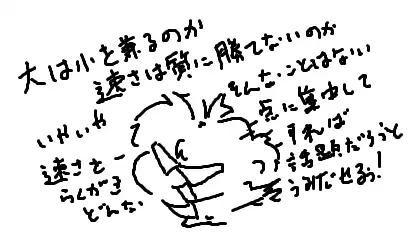 大は小を兼るのか
速さは質に勝てないのか
そんなことはない
点に集中して
すれば
話題だろうと
うみだせるっ!
いやいや
速さと
らくがき
どんな